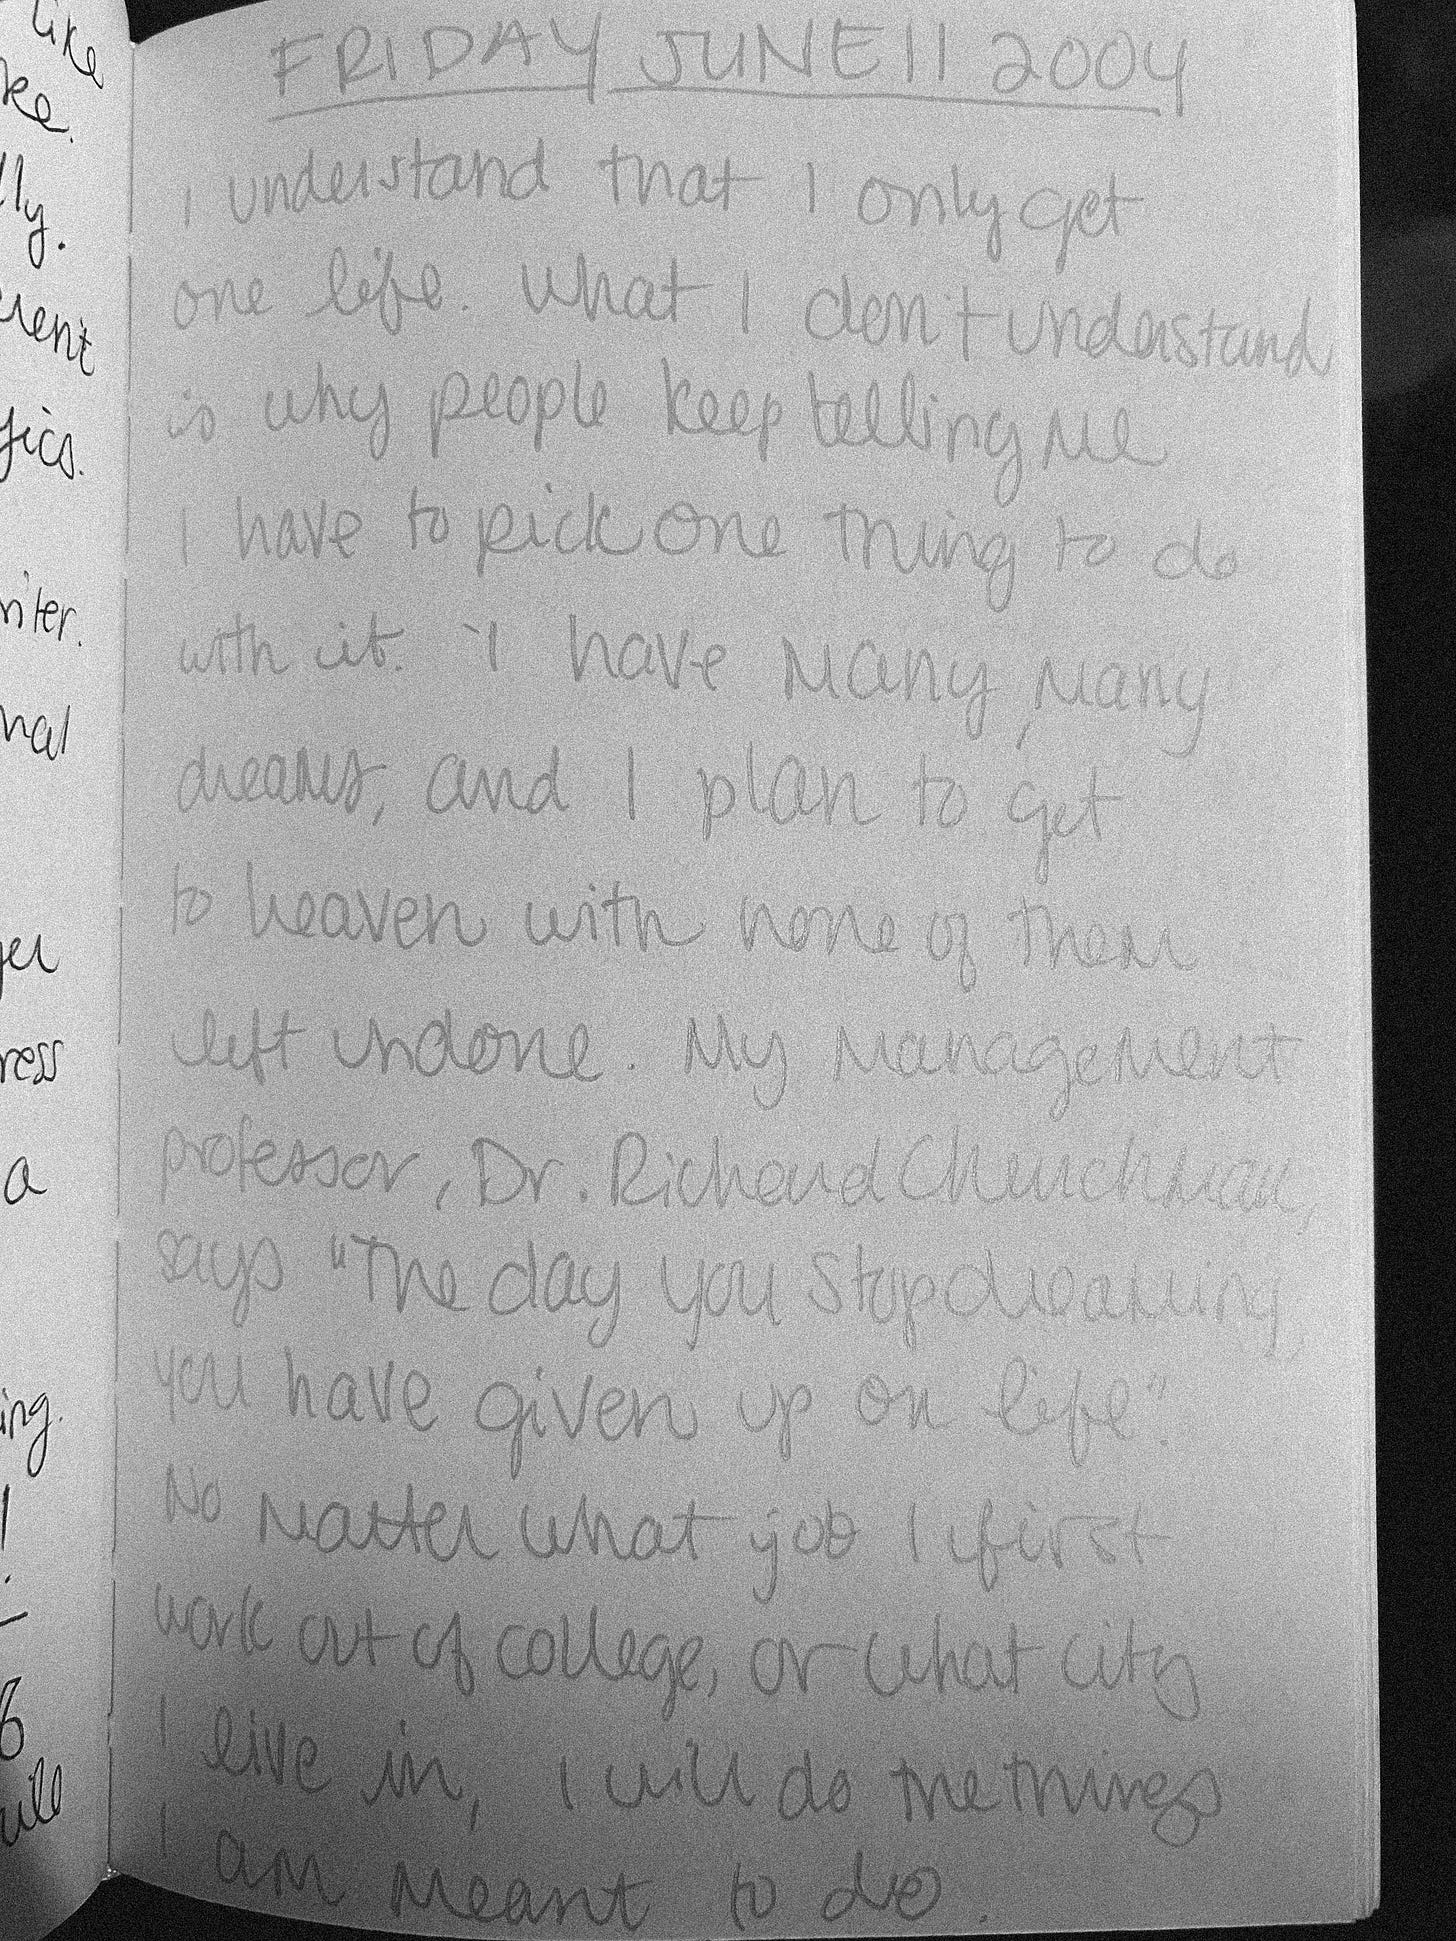 like
ke.
lly.
fics.
nal
ress
a
ing.
FRIDAY JUNE 11 2004
I understand that I only get
one life. What I don't understand
is why people keep telling me
I have to pick one thing to do
with it. I have many, many
dreams, and I plan to get
to heaven with none of them
left undone. My management
professor, Dr. Richard Churchman,
says "The day you stop dreaming
you have given up on life".
No matter what job I first
work out of college, or what city
I live in, I will do the things
I am meant to do.